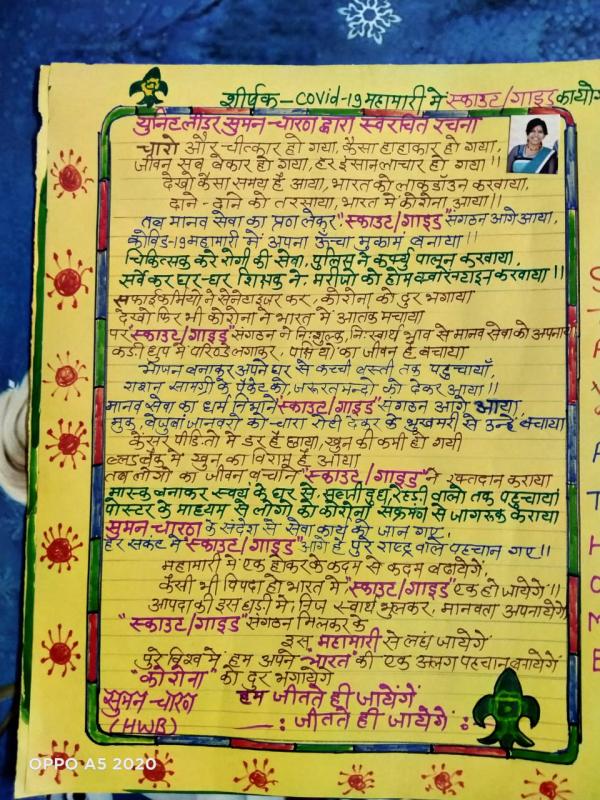 शीर्षक - COVID-19 महामारी में स्काउट/गाइड का योग
युनिट लीडर सुमन-चारण द्वारा स्वरचित रचना
चारो और चीत्कार हो गया, कैसा हाहाकार हो गया,
जीवन सब बेकार हो गया, हर इंसान लाचार हो गया !!
देखो कैसा समय है आया, भारत को लाकडॉउन करवाया,
दाने - दाने को तरसाया, भारत में कोरोना आया।।
तब मानव सेवा का प्रण लेकर, "स्काउट/गाइड" संगठन आगे आया,
कोविड-19 महामारी में अपना ऊंचा मुकाम बनाया !!
चिकित्सक करे रोगी की सेवा, पुलिस ने कर्फ्यु पालन करवाया,
सर्वे कर घर-घर शिक्षक ने, मरीजो को होम क्वारेनटाइन करवाया !!
सफाईकर्मियो ने सेनेटाइजर कर, कोरोना को दुर भगाया
देखो फिर भी कोरोना ने भारत में आतंक मचाया
पर "स्काउट/गाइड" संगठन ने नि:शुल्क, नि:स्वार्थ भाव से मानव सेवा को अपनाय
कडी धुप में परिण्डे लगाकर, पक्षियो का जीवन है बचाया
भोजन बनाकर अपने घर से कच्ची बस्ती तक पहुचायाँ,
राशन सामग्री के पैकेट को, जरूरतमन्दो को देकर आया !!
मानव सेवा का धर्म निभाने "स्काउट/गाइड" संगठन आगे आया,
मुक, बेजुबा जानवरो को चारा रोटी देकर के भुखमरी से उन्हें बचाया
कैंसर पीडितो में डर है छाया, खुन की कमी हो गयी
ब्लडबैंक में खुन का विराम है आया
तब लोगो का जीवन बचाने "स्काउट/गाइड" ने रक्तदान कराया
मास्क बनाकर स्वयं के घर से, सब्जी दुध, रेहडी वालो तक पहुचाया
पोस्टर के माध्यम से लोगो को कोरोना संक्रमण से जागरूक कराया
सुमन चारण के संदेश से सेवा कार्य को जान गए,
हर संकट में "स्काउट/गाइड" आगे है, पुरे राष्ट्र वाले पहचान गए।।
महामारी में एक होकर के कदम से कदम बढायेगें,
कैसी भी विपदा हो भारत में, "स्काउट/गाइड" एक हो जायेगें !!
आपदा की इस घडी में, निज स्वार्थ भुलकर, मानवता अपनायेगें
"स्काउट/गाइड" संगठन मिलकर के
इस महामारी से लड़ जायेगें
पुरे विश्व में हम अपने "भारत" की एक अलग पहचान बनायेगें
"कोरोना" को दुर भगायेगें
हम जीतते ही जायेगें
सुमन-चारण
(HWB) ——: जीतते ही जायेगें :
STAY AT HOME
OPPO A5 2020